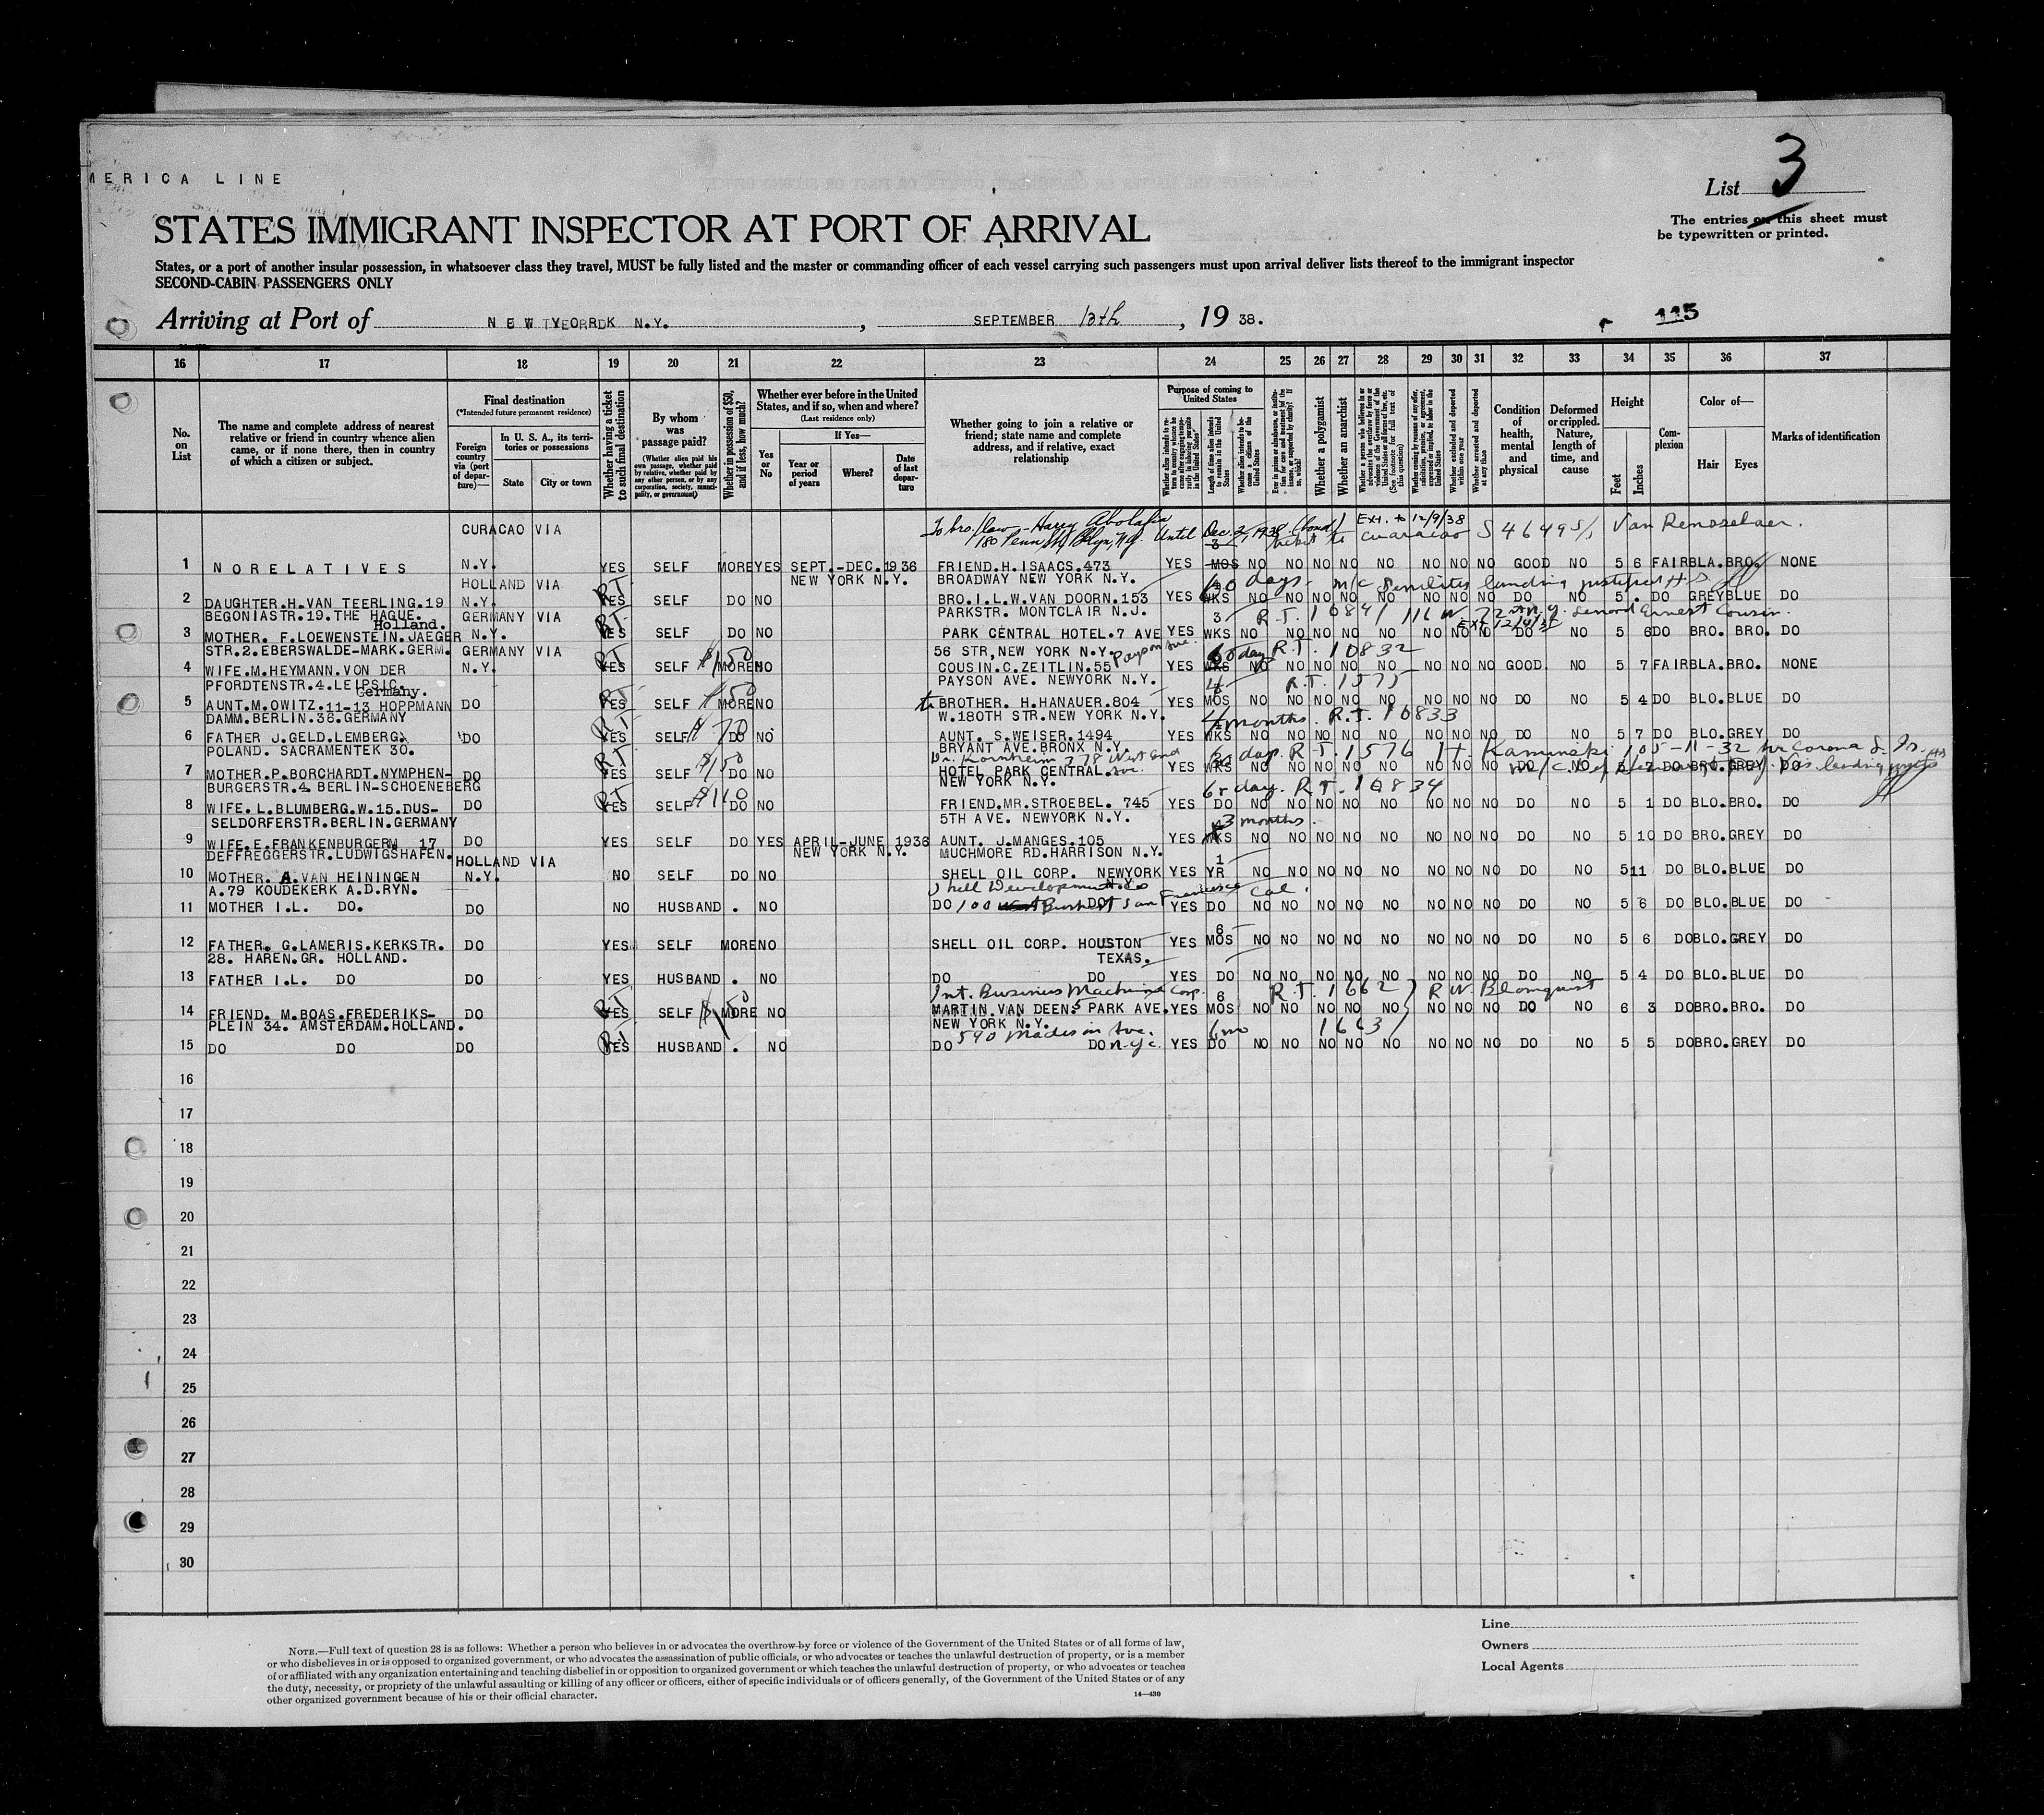 MERICA LINE
List 3
STATES IMMIGRANT INSPECTOR AT PORT OF ARRIVAL
The entries on this sheet must
be typewritten or printed.
States, or a port of another insular possession, in whatsoever class they travel, MUST be fully listed and the master or commanding officer of each vessel carrying such passengers must upon arrival deliver lists thereof to the immigrant inspector
SECOND-CABIN PASSENGERS ONLY
Arriving at Port of NEW YORK N.Y., SEPTEMBER 13th, 19 38.
115
16 17 18 19 20 21 22 23 24 25 26 27 28 29 30 31 32 33 34 35 36 37
No. on List
The name and complete address of nearest relative or friend in country whence alien came, or if none there, then in country of which a citizen or subject.
Final destination
(*Intended future permanent residence)
Foreign country via (port of departure)—
In U. S. A., its territories or possessions
State
City or town
Whether having a ticket to such final destination
By whom was passage paid?
(Whether alien paid his own passage, whether paid by relative, whether paid by any other person, or by any corporation, society, municipality, or government)
Whether in possession of $50, and if less, how much?
Whether ever before in the United States, and if so, when and where?
(Last residence only)
was
If Yes—
Yes or No
Year or period of years
Where?
Date of last departure
Whether going to join a relative or friend; state name and complete address, and if relative, exact relationship
Purpose of coming to United States
Whether a polygamist
Whether an anarchist
Condition of health, mental and physical
Deformed or crippled. Nature, length of time, and cause
Height
Feet
Inches
Complexion
Color of—
Hair
Eyes
Marks of identification
To bro/law - Harry Abolafia
180 Penn St Bklyn, N.Y. Until Dec. 2, 1938 (bond) Ext. to 12/9/38
ticket to Curacao S 46495/1 Van Rensselaer.
CURACAO VIA
1 NO RELATIVES N.Y. YES SELF MORE YES SEPT.-DEC.1936 FRIEND.H.ISAACS.473 YES 3 MOS NO NO NO NO NO NO NO NO GOOD NO 5 6 FAIR BLA. BRO. NONE
NEW YORK N.Y. BROADWAY NEW YORK N.Y.
HOLLAND VIA
60 days - m/c Senility landing justified HS
2 DAUGHTER.H.VAN TEERLING.19 N.Y. RT YES SELF DO NO BRO.I.L.W.VAN DOORN.153 YES WKS NO NO NO NO NO NO NO NO DO NO 5 . DO GREY BLUE DO
BEGONIASTR.19.THE HAGUE. Holland. GERMANY VIA PARKSTR. MONTCLAIR N.J.
3 R.T. 10841
Ext 12/9/38
3 MOTHER. F.LOEWENSTEIN.JAEGER N.Y. RT YES SELF DO NO PARK CENTRAL HOTEL.7 AVE YES WKS NO NO NO NO NO NO NO NO DO NO 5 6 DO BRO. BRO. DO
STR.2.EBERSWALDE-MARK.GERM. GERMANY VIA 56 STR,NEW YORK N.Y. Payson Ave.
60 day R.T. 10832
4 WIFE.M.HEYMANN.VON DER N.Y. RT YES SELF $150 MORE NO COUSIN.C.ZEITLIN.55 YES WKS NO NO NO NO NO NO NO NO GOOD NO 5 7 FAIR BLA. BRO. NONE
PFORDTENSTR.4.LEIPSIC. Germany. PAYSON AVE. NEWYORK N.Y.
R.T. 1575
5 AUNT.M.OWITZ.11-13 HOPPMANN DO RT YES SELF $50 MORE NO to BROTHER. H.HANAUER.804 YES MOS NO NO NO NO NO NO NO NO DO NO 5 4 DO BLO. BLUE DO
DAMM.BERLIN.36.GERMANY W.180TH STR.NEW YORK N.Y.
4 months. R.T. 10833
6 FATHER J.GELD.LEMBERG. DO RT YES SELF $70 DO NO AUNT. S.WEISER.1494 YES WKS NO NO NO NO NO NO NO NO DO NO 5 7 DO BLO. GREY DO
POLAND. SACRAMENTEK 30. BRYANT AVE.BRONX N.Y.
Dr. Kornheim 778 West End Ave. 60 day. R.T. 1576 Kaminski 105-11-32 Ave Corona L. Is.
7 MOTHER.P.BORCHARDT.NYMPHEN- DO RT YES SELF $150 DO NO HOTEL PARK CENTRAL. YES WKS NO NO NO NO NO NO NO NO DO NO 5 7 DO BRO. GREY DO
BURGERSTR.4 BERLIN-SCHOENEBERG NEW YORK N.Y.
60 day. R.T. 10834
8 WIFE.L.BLUMBERG.W.15.DUS- DO RT YES SELF $110 DO NO FRIEND.MR.STROEBEL. 745 YES DO NO NO NO NO NO NO NO NO DO NO 5 1 DO BLO. BRO. DO
SELDORFERSTR.BERLIN.GERMANY 5TH AVE. NEWYORK N.Y.
3 months.
9 WIFE.E.FRANKENBURGERM 17 DO YES SELF DO YES APRIL-JUNE.1936 AUNT. J.MANGES.105 YES WKS NO NO NO NO NO NO NO NO DO NO 5 10 DO BRO. GREY DO
DEFFREGGERSTR.LUDWIGSHAFEN. NEW YORK N.Y. MUCHMORE RD.HARRISON N.Y.
HOLLAND VIA 1
10 MOTHER. A.VAN HEININGEN N.Y. NO SELF DO NO SHELL OIL CORP. NEWYORK N.Y. YES YR NO NO NO NO NO NO NO NO DO NO 5 11 DO BLO. BLUE DO
A.79 KOUDEKERK A.D.RYN.
Shell Development Co
11 MOTHER I.L. DO. DO NO HUSBAND . NO DO 100 Bush St San Francisco Cal. DO YES DO NO NO NO NO NO NO NO NO DO NO 5 6 DO BLO. BLUE DO
6
12 FATHER. G.LAMERIS.KERKSTR. DO YES SELF MORE NO SHELL OIL CORP. HOUSTON YES MOS NO NO NO NO NO NO NO NO DO NO 5 6 DO BLO. GREY DO
28. HAREN.GR. HOLLAND. TEXAS.
13 FATHER I.L. DO DO YES HUSBAND . NO DO DO YES DO NO NO NO NO NO NO NO NO DO NO 5 4 DO BLO. BLUE DO
Int. Business Machine Corp. 6 R.T. 1662 ) R W. Blomquist
14 FRIEND. M.BOAS.FREDERIKS- DO RT YES SELF $150 MORE NO MARTIN. VAN DEEN.5 PARK AVE. YES MOS NO NO NO NO NO NO NO NO DO NO 6 3 DO BRO. BRO. DO
PLEIN 34. AMSTERDAM.HOLLAND. NEW YORK N.Y.
590 Madison Ave. N.Y.C. 6 mo 1663
15 DO DO DO RT YES HUSBAND . NO DO DO YES DO NO NO NO NO NO NO NO NO DO NO 5 5 DO BRO. GREY DO
16
17
18
19
20
21
22
23
24
25
26
27
28
29
30
Line
Owners
Local Agents
NOTE.—Full text of question 28 is as follows: Whether a person who believes in or advocates the overthrow by force or violence of the Government of the United States or of all forms of law,
or who disbelieves in or is opposed to organized government, or who advocates the assassination of public officials, or who advocates or teaches the unlawful destruction of property, or is a member
of or affiliated with any organization entertaining and teaching disbelief in or opposition to organized government or which teaches the unlawful destruction of property, or who advocates or teaches
the duty, necessity, or propriety of the unlawful assaulting or killing of any officer or officers, either of specific individuals or of officers generally, of the Government of the United States or of any
other organized government because of his or their official character.
14—430